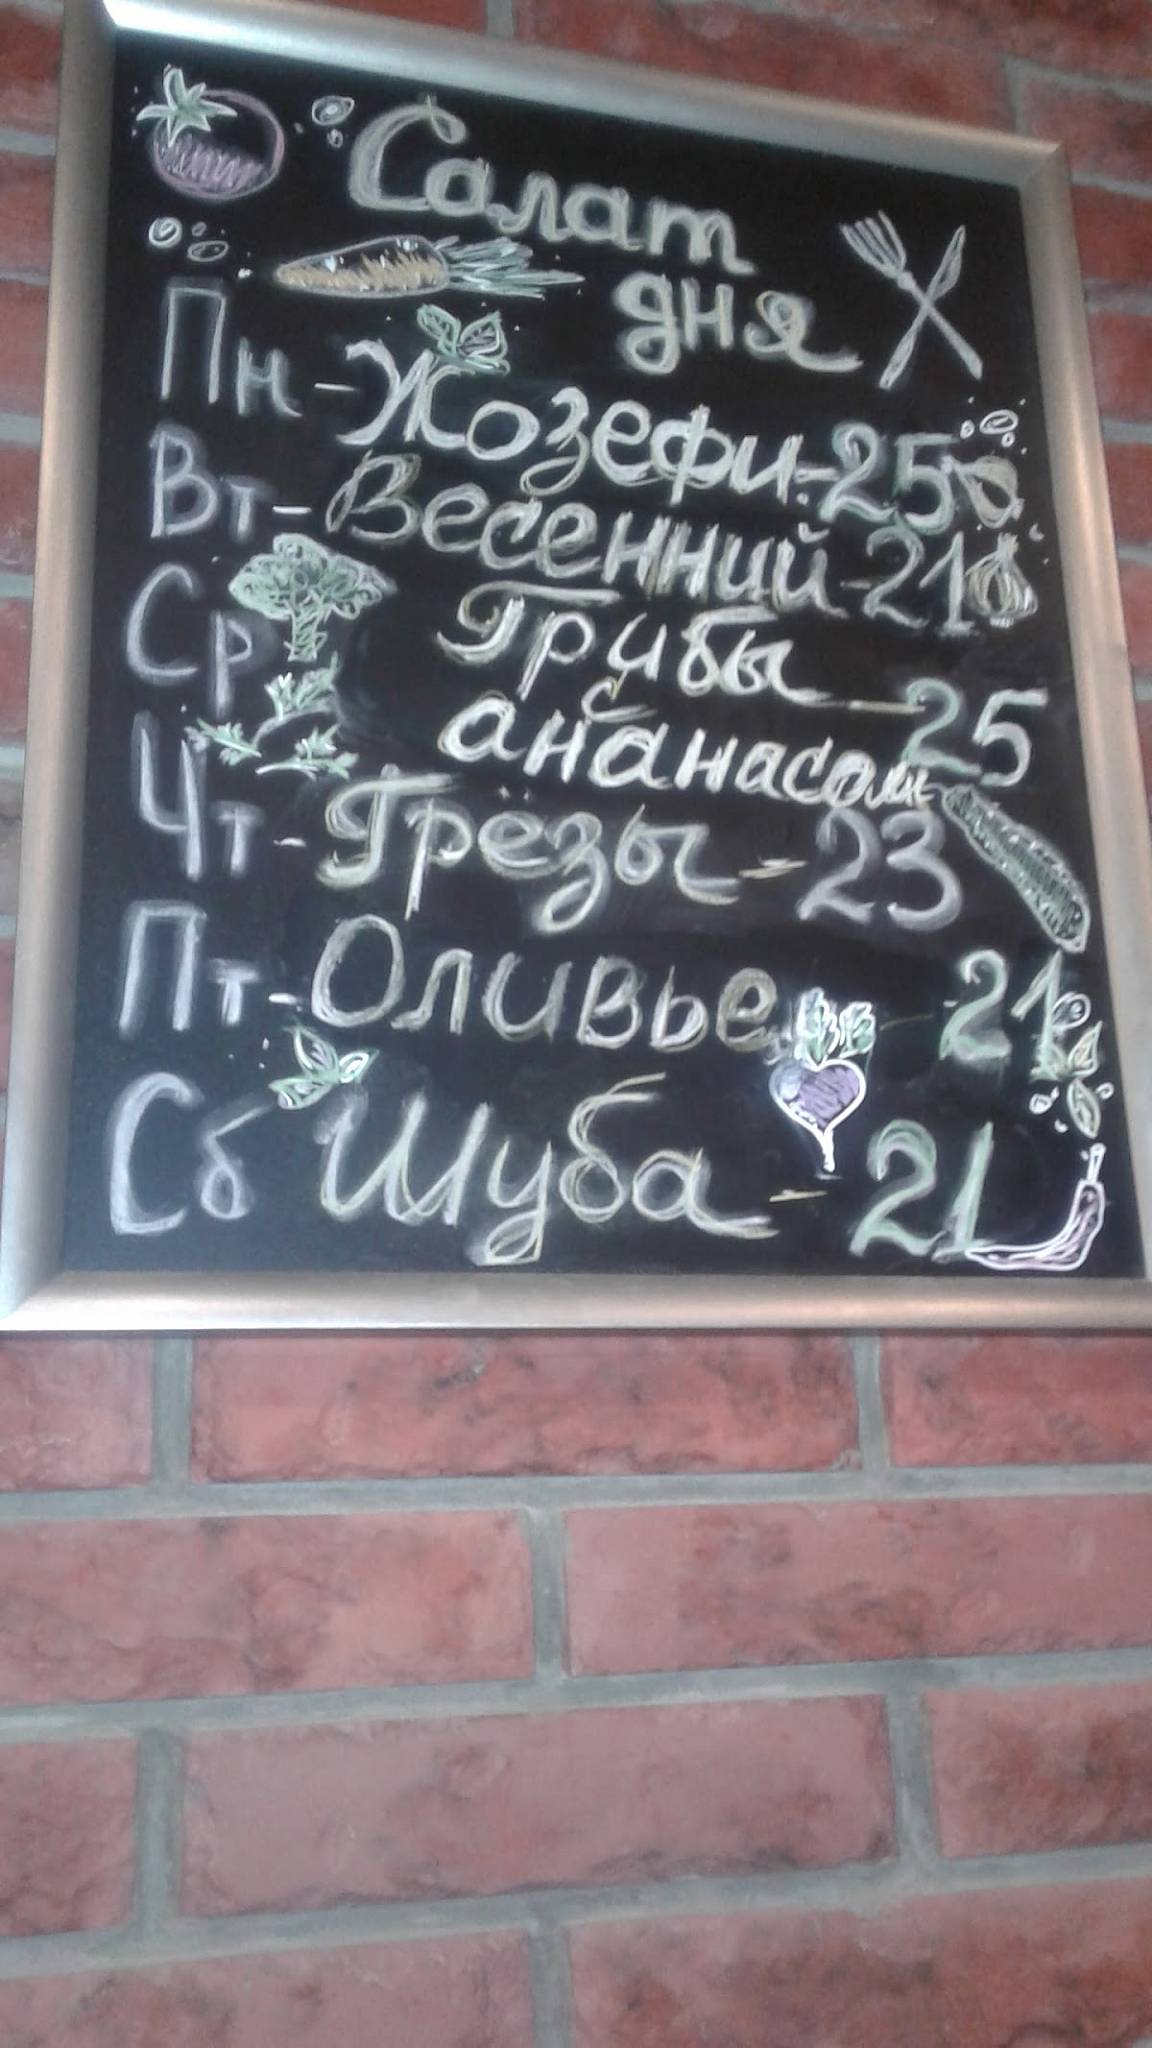 Салат
дня
Пн - Жозефи - 25
Вт - Весенний - 21
Ср Грибы
с
ананасом - 25
Чт - Грёзы - 23
Пт - Оливье - 21
Сб Шуба - 21